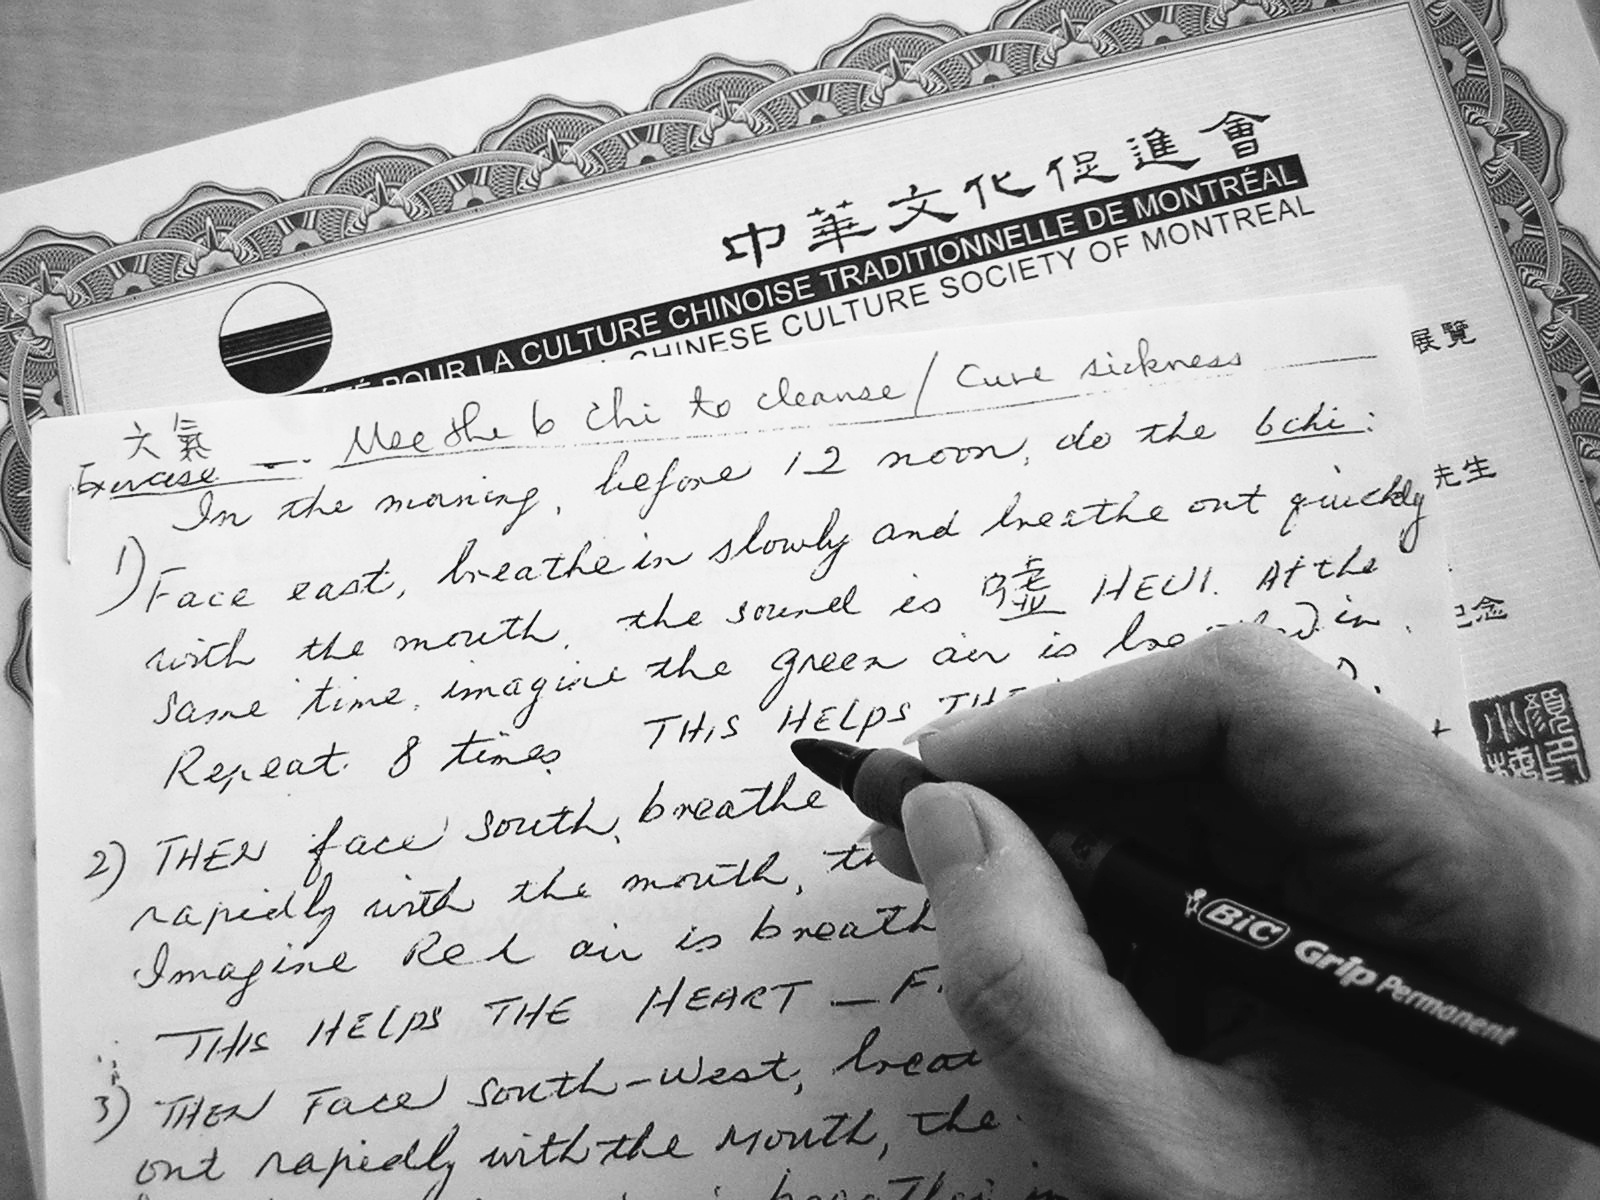 中華文化促進會
POUR LA CULTURE CHINOISE TRADITIONNELLE DE MONTRÉAL
CHINESE CULTURE SOCIETY OF MONTREAL
展覽
先生
念
六氣
Exercise — Use the 6 chi to cleanse / Cure sickness
In the morning, before 12 noon, do the 6 chi:
1) Face east, breathe in slowly and breathe out quickly
with the mouth, the sound is 噓 HEUI. At the
same time, imagine the green air is breathed in.
Repeat 8 times. THIS HELPS THE
2) THEN face South, breathe
rapidly with the mouth,
Imagine Red air is
THIS HELPS THE HEART —
3) THEN Face South-West,
out rapidly with the Mouth, the
BiC Grip Permanent